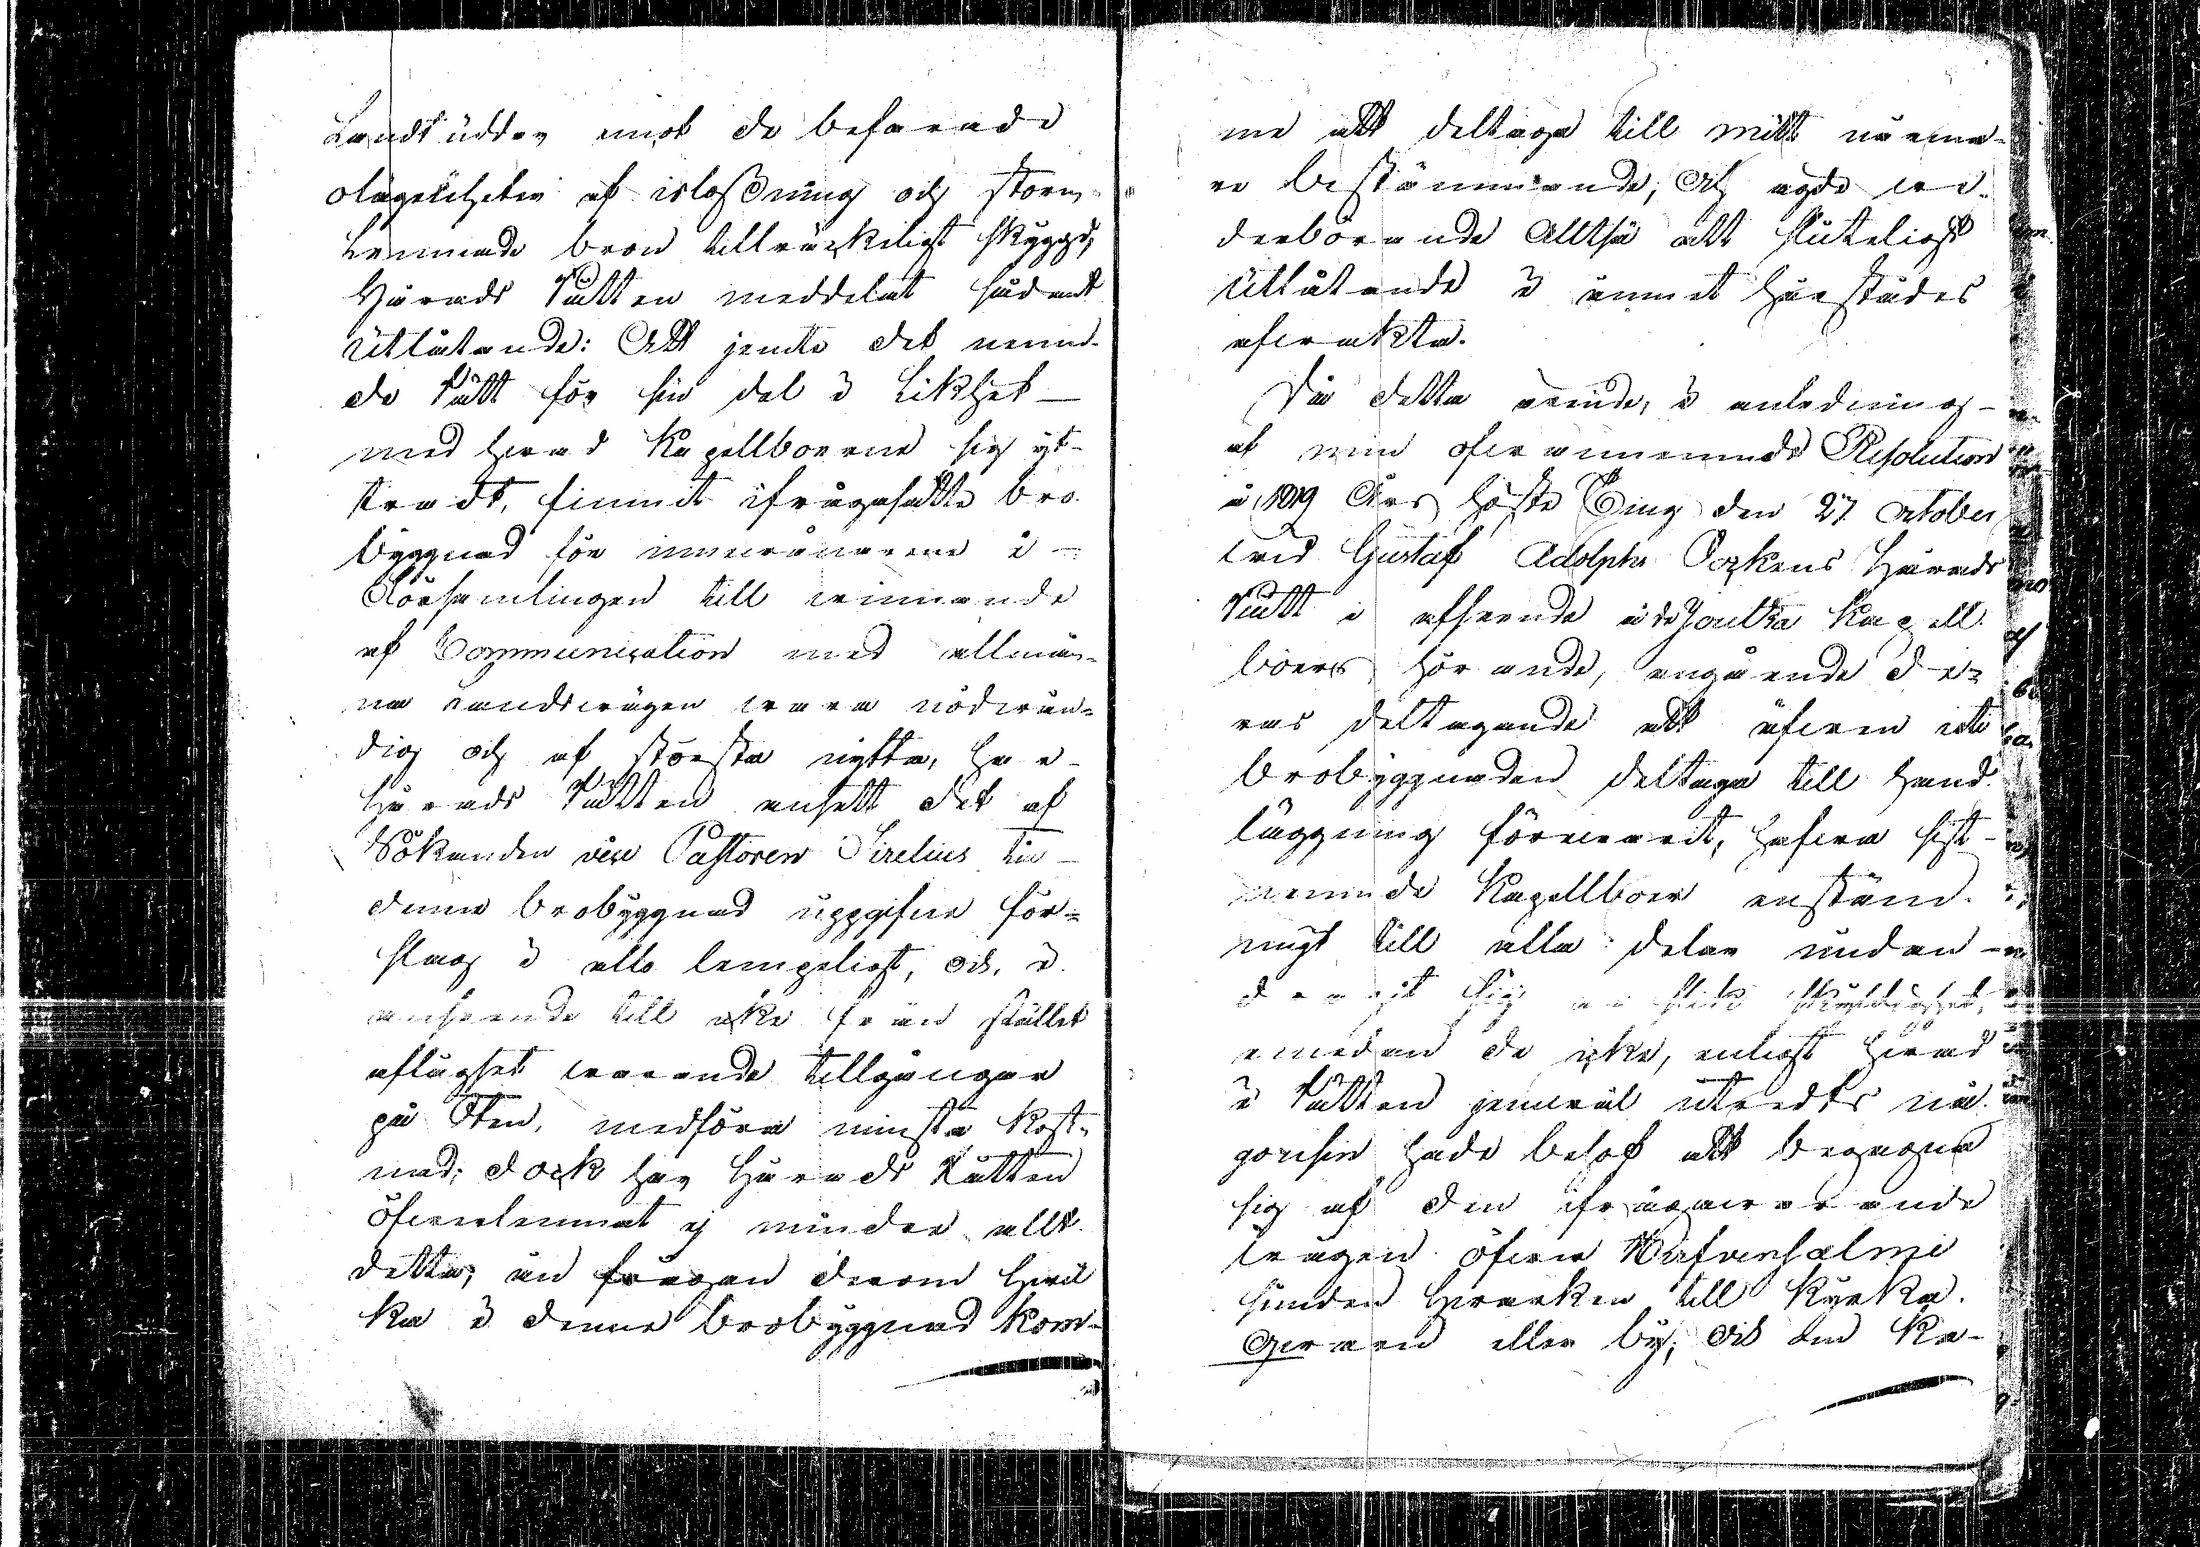 Landtudden emot de befarande
olägenheter af islossning och storm
lemnade bron tillräckeligt skygd,
Härads Rätten meddelat sådant
Utlåtande: Att jemte det nemn-
de Rätt för sin del i Likhet
med hwad Kapellboerne sig ytt-
radt, funnit ifrågasatte bro
byggnad för inwånarene i
Församlingen till winnande
af Communication med allmän-
na Landswägen wara nödwän-
dig och af största nytta, har
Härads Rätten ansett det af
Sökanden vice Pastoren Sirelius till
denna brobyggnad uppgifne för-
slag i allo lempeligt, och, i
anseende till icke från stället
aflägset warande tillgångar
på Sten, medföra minsta kost-
nad; dock har Härads Rätten
öfwerlemnat ej mindre allt
detta, än frågan derom hwil
ka i denna brobyggnad kom-
me att deltaga till mitt närma-
re bestämmande; Och egde we-
derbörande Alltså att sluteligt
Utlåtande i ämnet härstädes
afwakta.
Då detta ärende, i anledning
af min ofwannemnde Resolution
å 1819 Års Höste Ting den 27 October
wid Gustaf Adolphs Sockens Härads
Rätt i afseende å de Joutsa Kapell
boers hörande, angående de-
ras deltagande att äfwen i
brobyggnaden deltaga till hand
läggning förewarit, hafwa sist-
nemnde Kapellboer enstäm-
migt till alla delar undan
dragit sig en slik skyldighet,
emedan de icke, enligt hwad
i Rätten jemwäl utredts nå-
gonsin hade behof att begagna
sig af den ifrågawarande
wägen öfwer Karfvensalmi
sunden hwarken till Kyrka.
Qwarn eller by; och den Ka-